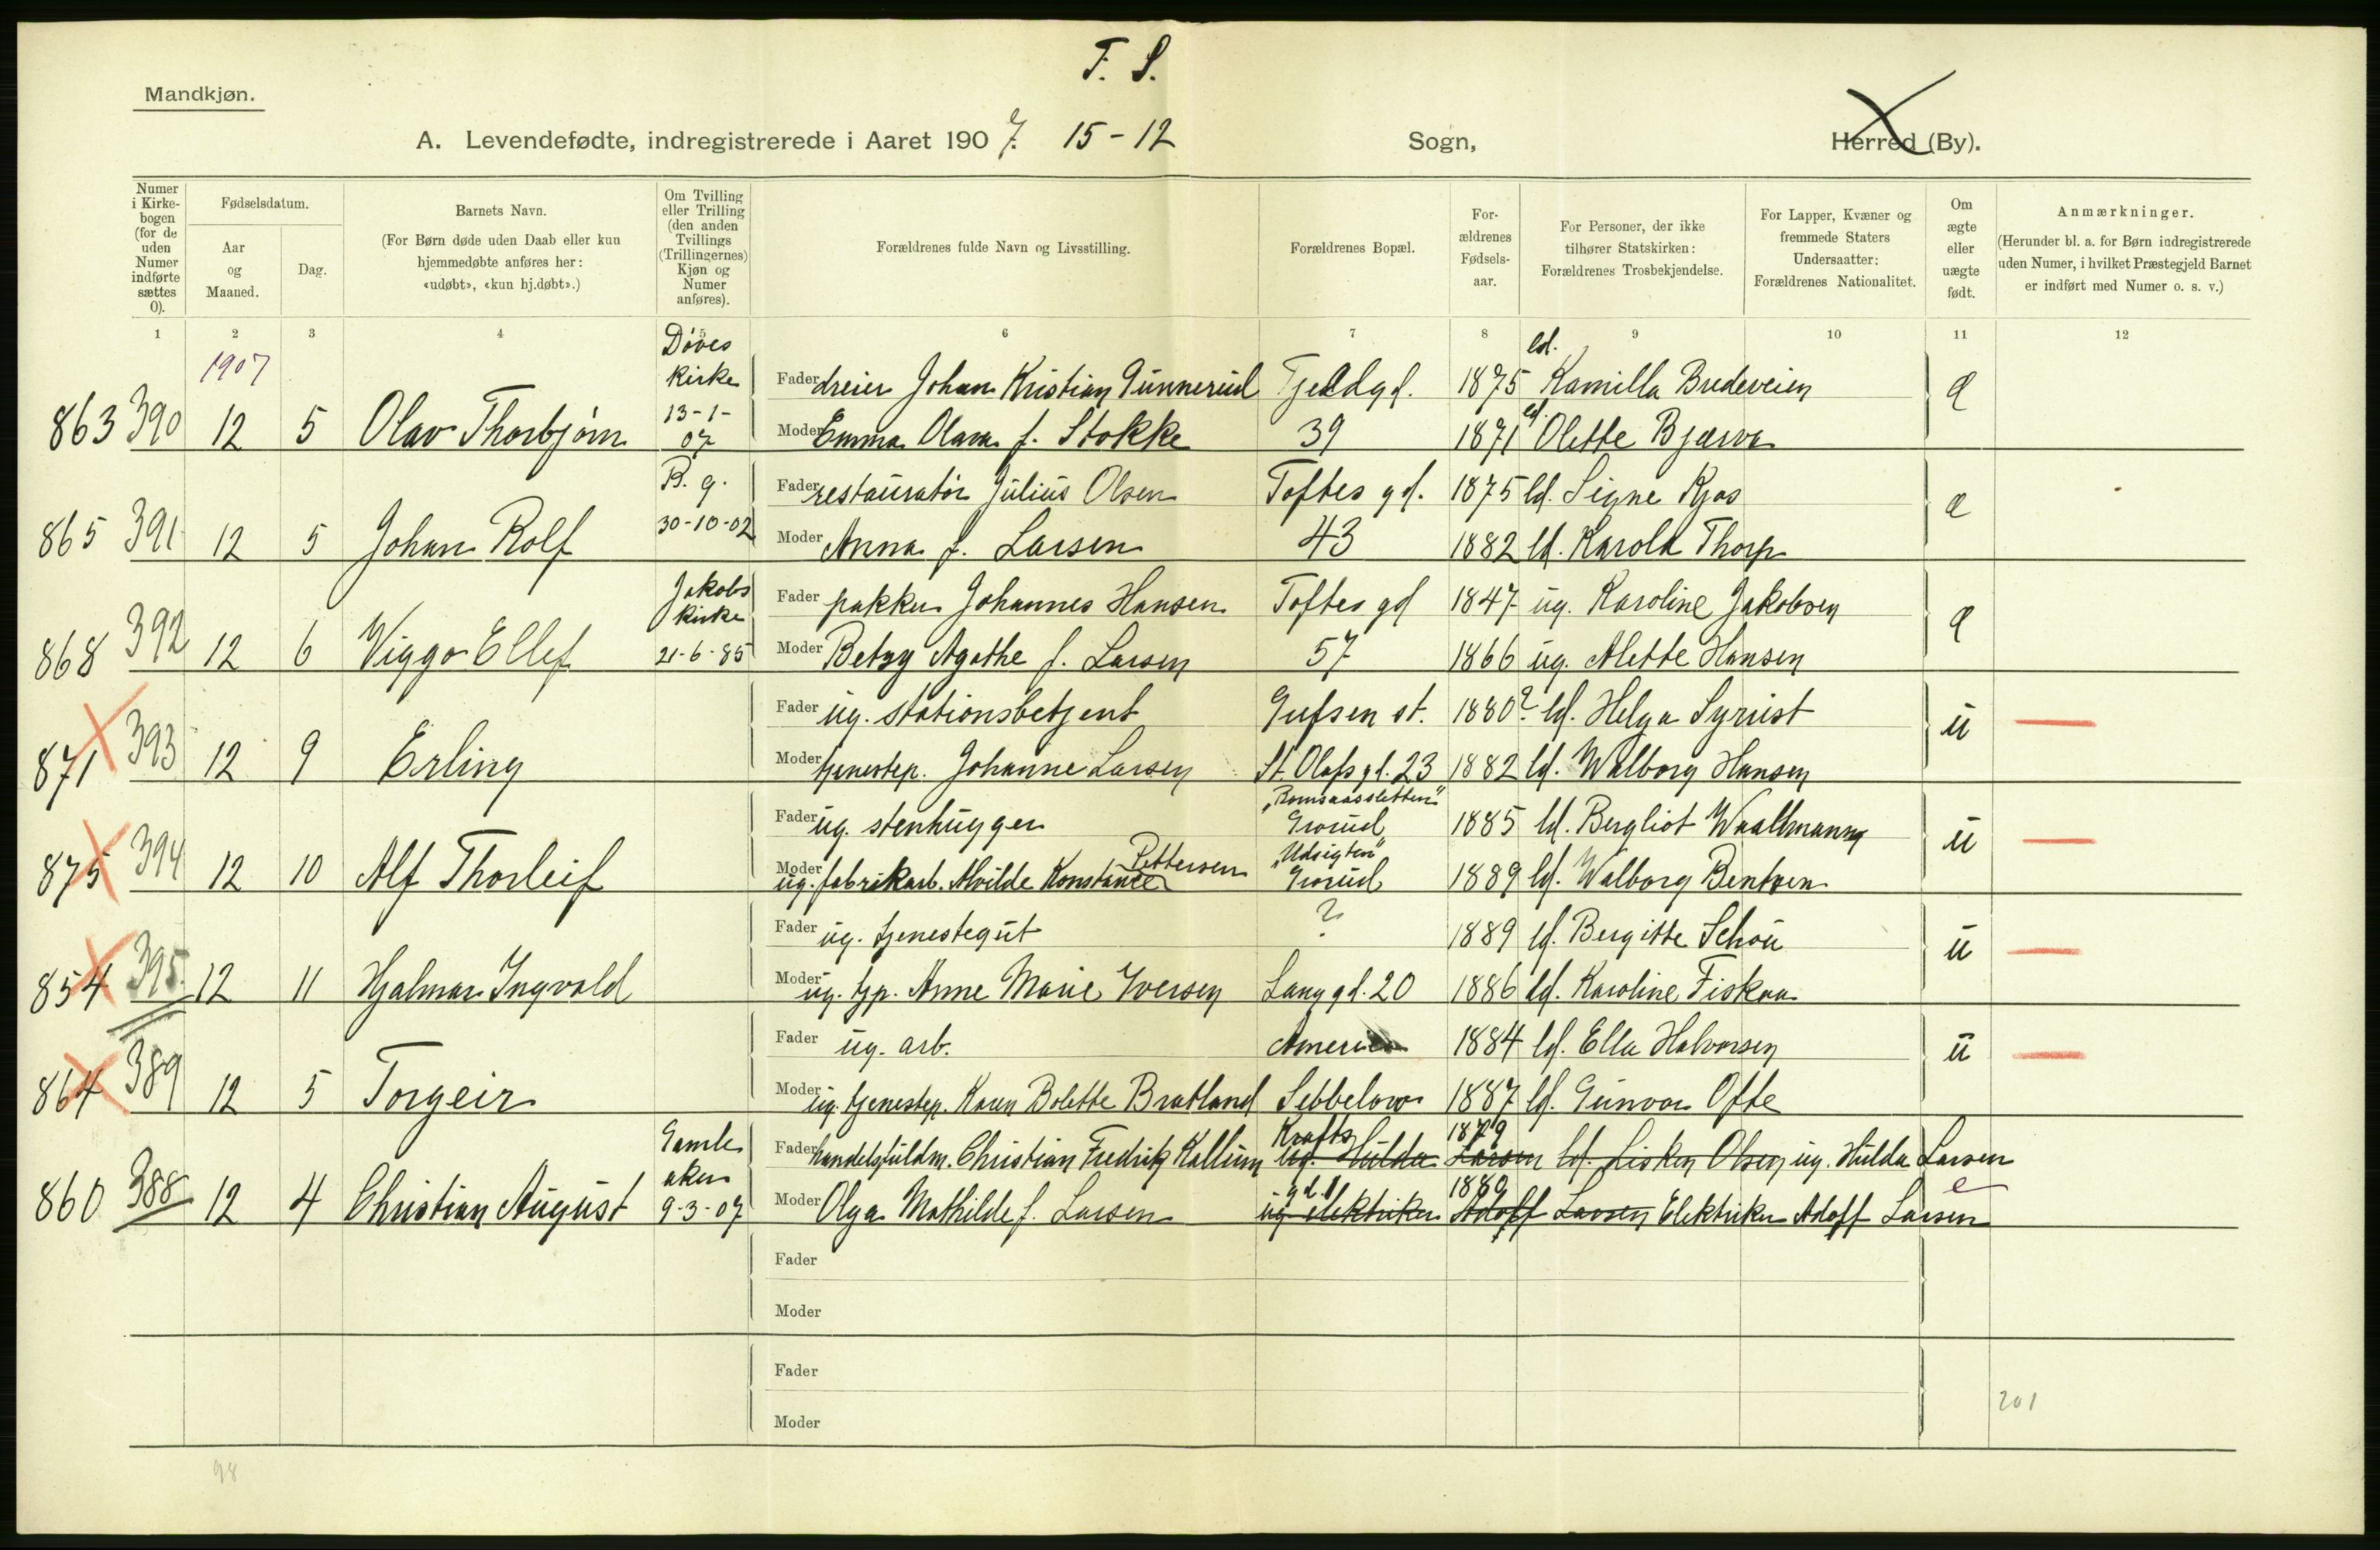 F. S.
Mandkjøn.
A. Levendefødte, indregistrerede i Aaret 1907. 15-12 Sogn, Herred (By).
Numer i Kirkebogen (for de uden Numer indførte sættes 0).
Fødselsdatum.
Aar og Maaned.
Dag.
Barnets Navn.
(For Børn døde uden Daab eller kun hjemmedøbte anføres her: «udøbt», «kun hj.døbt».)
Om Tvilling eller Trilling (den anden Tvillings (Trillingernes) Kjøn og Numer anføres).
Forældrenes fulde Navn og Livsstilling.
Forældrenes Bopæl.
Forældrenes Fødselsaar.
For Personer, der ikke tilhører Statskirken: Forældrenes Trosbekjendelse.
For Lapper, Kvæner og fremmede Staters Undersaatter: Forældrenes Nationalitet.
Om ægte eller uægte født.
Anmærkninger.
(Herunder bl. a. for Børn indregistrerede uden Numer, i hvilket Præstegjeld Barnet er indført med Numer o. s. v.)
1 2 3 4 5 6 7 8 9 10 11 12
1907
Døves kirke 13-1-07
Fader dreier Johan Kristian Gunnerud Tjeldgd. 1875 ld. Kamilla Bredeveien
863 390 12 5 Olav Thorbjørn Moder Emma Olava f. Stokke 39 1871 ld. Olette Bjærva
R. g. Fader restauratør Julius Olsen Toftes gd. 1875 ld. Signe Kjos
865 391 12 5 Johan Rolf 30-10-02 Moder Anna f. Larsen 43 1882 ld. Karola Thorp
Jakobs kirke Fader pakker Johannes Hansen Toftes gd 1847 ug. Karoline Jakobsen
868 392 12 6 Viggo Ellef 21-6-85 Moder Betzy Agathe f. Larsen 57 1866 ug. Alette Hansen
Fader ug. stationsbetjent Gufsen st. 1880? ld. Helga Syrist u
871 393 12 9 Erling Moder tjenestep. Johanne Larsen St. Olafs gd. 23 1882 ld. Walborg Hansen
Fader ug. stenhugger "Romsaassletten" Grorud 1885 ld. Bergliot Waallmann u
875 394 12 10 Alf Thorleif Moder ug. fabrikarb. Alvilde Konstance Pettersen "Udsigten" Grorud 1889 ld. Walborg Bentsen
Fader ug. tjenestegut ? 1889 ld. Bergitte Schou u
854 395 12 11 Hjalmar Ingvald Moder ug. tjp. Anne Marie Iversen Lang gd. 20 1886 ld. Karoline Fiskaa
Fader ug. arb. America 1884 ld. Ella Halvorsen u
864 389 12 5 Torgeir Moder ug. tjenestep. Karen Bolette Bratland Sebbelows 1887 ld. Gunvor Ofte
Gamle aker Fader handelsfuldm. Christian Fredrik Kallum Krafts ug. Hulda 1879 Larsen ld. Lisken Olsen ug. Hulda Larsen
860 388 12 4 Christian August 9-3-07 Moder Olga Mathilde f. Larsen gd. 11 ug elektriker 1880 Adolf Larsen Elektriker Adolf Larsen
Fader
Moder
Fader
Moder
201
98